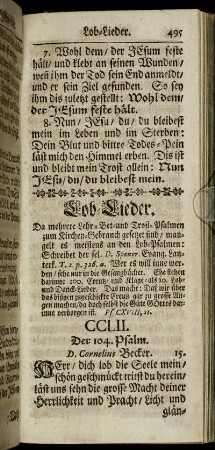 Lob-Lieder. 495
7. Wohl dem/ der JEsum feste
hält/ und klebt an seinen Wunden/
wen ihm der Tod sein End anmeldt/
und er sein Ziel gefunden. So sey
ihm dis zuletzt gestellt: Wohl dem/
der JEsum feste hält.
8. Nun/ JEsu/ du/ du bleibest
mein im Leben und im Sterben:
Dein Blut und bittre Todes-Pein
läst mich den Himmel erben. Dis ist
und bleibt mein Trost allein: Nun
JEsu/ du/ du bleibest mein.
Lob-Lieder.
Da mehrere Lehr- Bet- und Trost-Psalmen
zum Kirchen-Gebrauch gesetzet sind/ man-
gelt es meistens an den Lob-Psalmen:
Schreibet der sel. D. Spener. Evang. Lau-
terk. T. 2. p. 726. a. Wer es will inne wer-
den/ sehe nur in die Gesangbücher. Ehe stehen
darinne 100. Creutz- und Klage- als 10. Lob-
und Danck-Lieder. Das macht: Daß wir über
das irdigen zugeschickte Creutz gar zu grosse Augen
machen/ da doch selbst die Güte GOttes dar-
unter verborgen ist. Ps. CXVIII, 21.
CCLII.
Der 104. Psalm.
D. Cornelius Becker. 15.
HErr/ dich lob die Seele mein/
schön geschmückt wirst du herein/
läst uns sehn die grosse Macht deiner
Herrlichkeit und Pracht/ Licht und
glän-